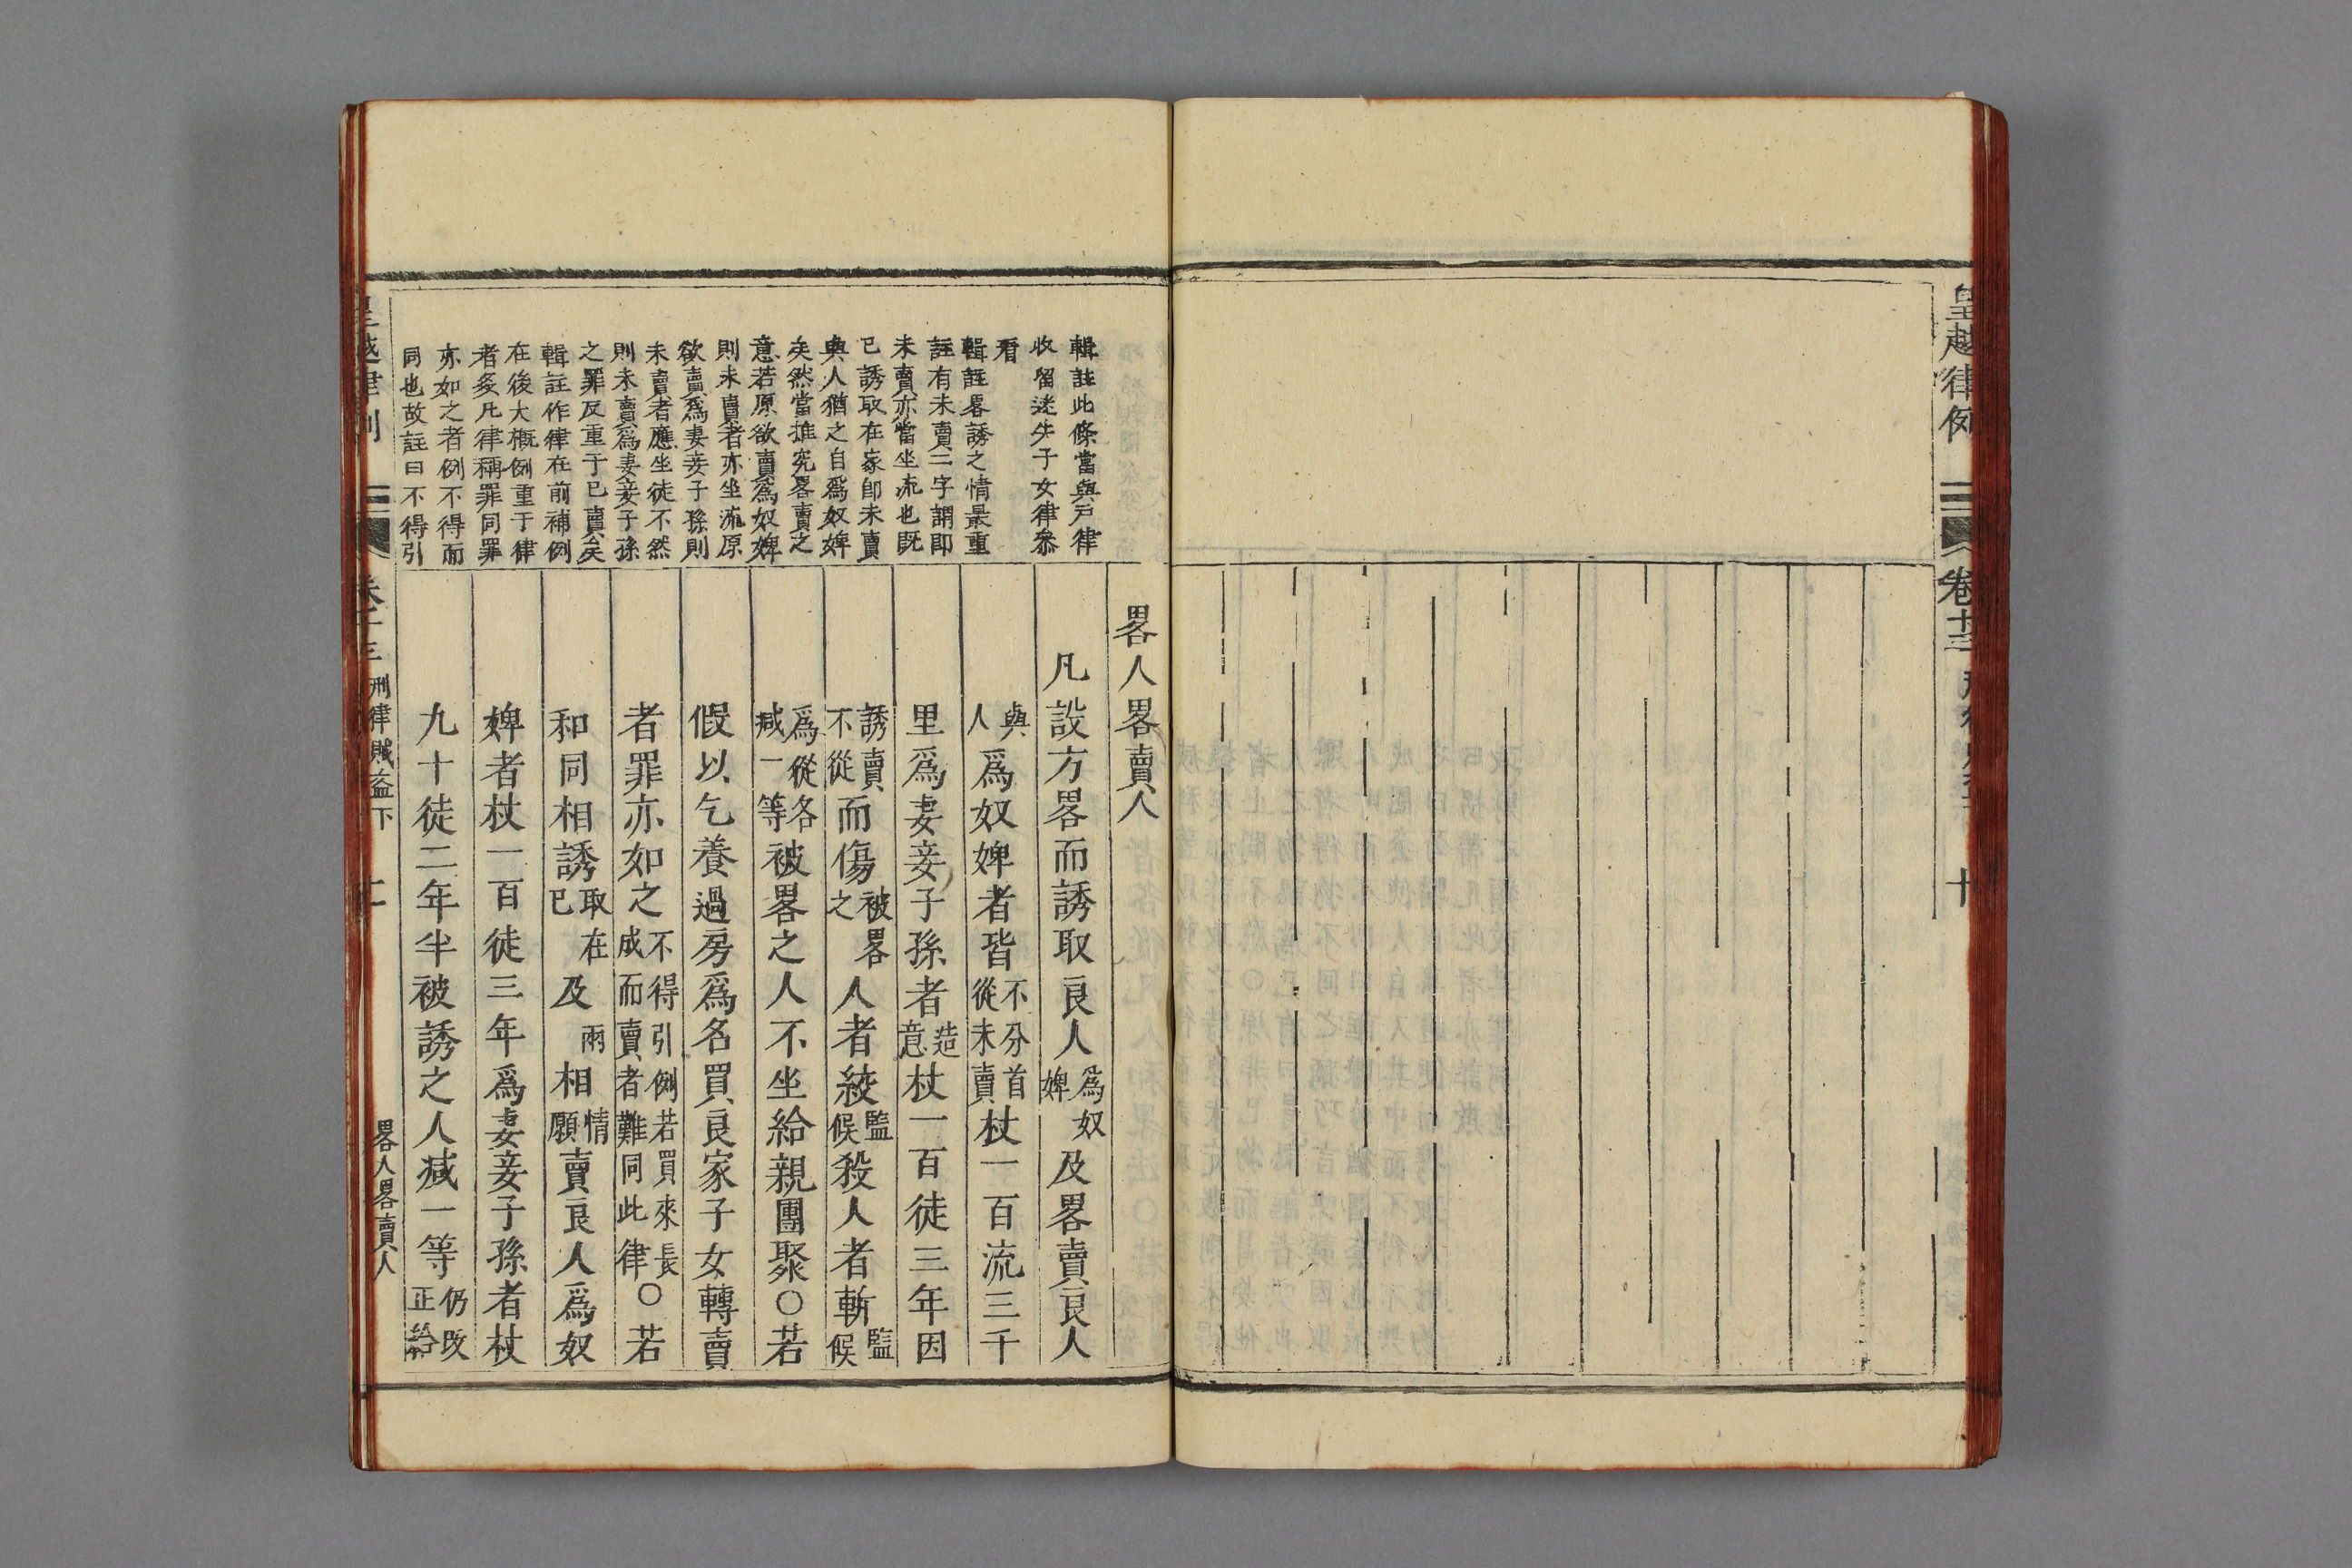 皇越律例
卷十三
十
輯註此條當與戶律
收留迷失子女律叅
看
輯註畧誘之情最重
註有未賣二字謂即
未賣亦當坐流也既
已誘取在家即未賣
與人猶之自爲奴婢
矣然當推究畧賣之
意若原欲賣爲奴婢
則未賣者亦坐流原
欲賣爲妻妾子孫則
未賣者應坐徒不然
則未賣爲妻妾子孫
之罪反重于已賣矣
輯註作律在前補例
在後大槪例重于律
者矣凡律稱罪同罪
亦如之者例不得而
同也故註曰不得引
畧人畧賣人
凡設方畧而誘取良人爲奴婢及畧賣良人
與人爲奴婢者皆不分首從未賣杖一百流三千
里爲妻妾子孫者造意杖一百徒三年因
誘賣不從而傷被畧之人者絞監候殺人者斬監候
爲從各減一等被畧之人不坐給親團聚○若
假以乞養過房爲名買良家子女轉賣
者罪亦如之不得引例若買來長成而賣者難同此律○若
和同相誘取在已及兩相情願賣良人爲奴
婢者杖一百徒三年爲妻妾子孫者杖
九十徒二年半被誘之人減一等仍改正給
皇越律例
卷十三
刑律賊盜下
畧人畧賣人